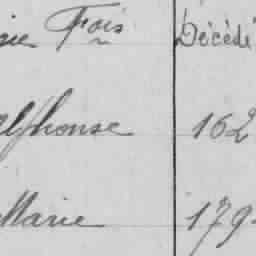 Fois Décédé
Alphonse 162
Marie 179